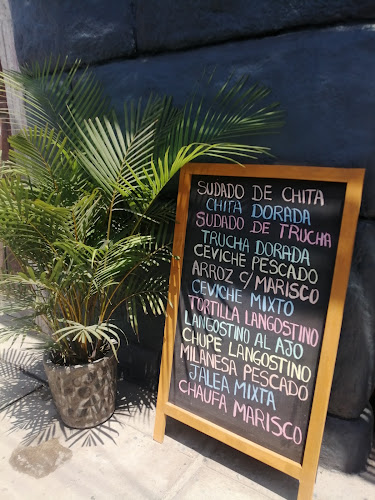 SUDADO DE CHITA
CHITA DORADA
SUDADO DE TRUCHA
TRUCHA DORADA
CEVICHE PESCADO
ARROZ C/MARISCO
CEVICHE MIXTO
TORTILLA LANGOSTINO
LANGOSTINO AL AJO
CHUPE LANGOSTINO
MILANESA PESCADO
JALEA MIXTA
CHAUFA MARISCO